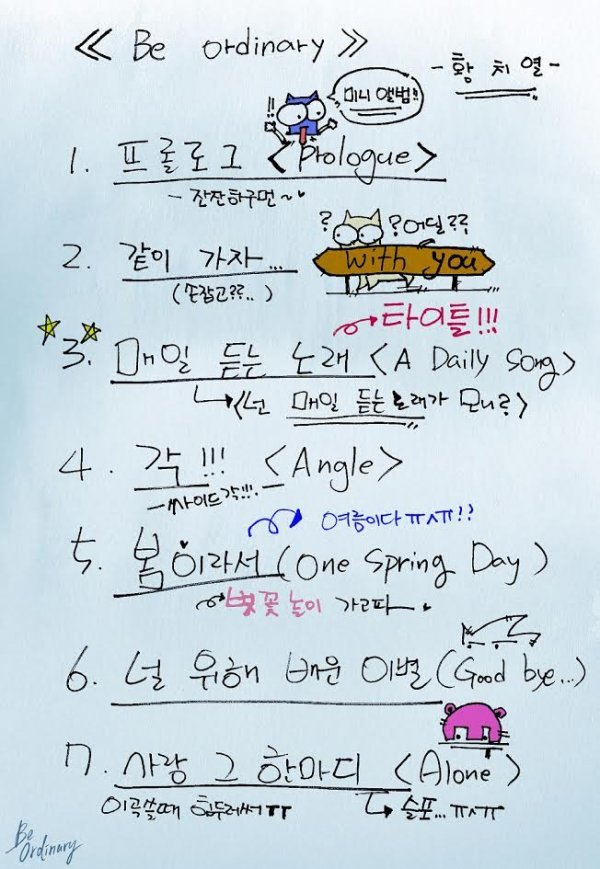 ≪ Be ordinary ≫
- 황 치 열 -
!! 미니 앨범!!
1. 프롤로그 <Prologue>
- 잔잔하구먼~♥
2. 같이 가자... with you
? ?어딜??
(손잡고??..)
타이틀!!!
3. 매일 듣는 노래 <A Daily Song>
<넌 매일 듣는 노래가 모니?>
4. 각!!! <Angle>
- 싸이드각!!!. -
여름이다 ㅠㅅㅠ!?
5. 봄이라서 (One Spring Day)
벚꽃놀이 가고파
6. 널 위해 배운 이별 (Good bye...)
7. 사랑 그 한마디 <Alone>
이곡쓸때 힘두러써ㅠ
슬포...ㅠㅅㅠ
Be Ordinary